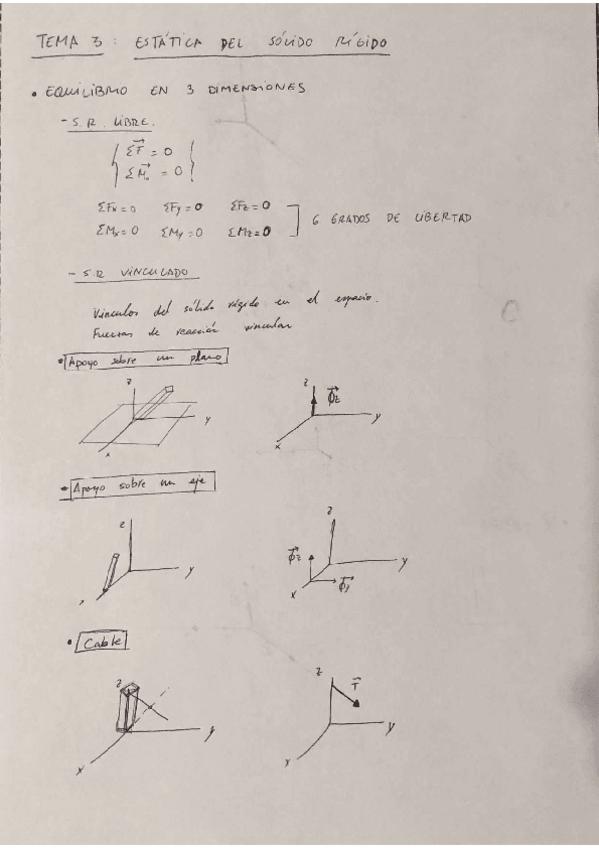 TEMA 3: ESTÁTICA DEL SÓLIDO RÍGIDO
• EQUILIBRIO EN 3 DIMENSIONES
- S.R. LIBRE.
ΣF⃗ = 0
ΣM⃗o = 0
ΣFx=0 ΣFy=0 ΣFz=0
ΣMx=0 ΣMy=0 ΣMz=0
6 GRADOS DE LIBERTAD
- S.R VINCULADO
Vínculos del sólido rígido en el espacio.
Fuerzas de reacción vincular
• Apoyo sobre un plano
z y x
z ϕ⃗z y x
• Apoyo sobre un eje
z y
z ϕ⃗z ϕ⃗y y x
• Cable
z y x
z T⃗ y x